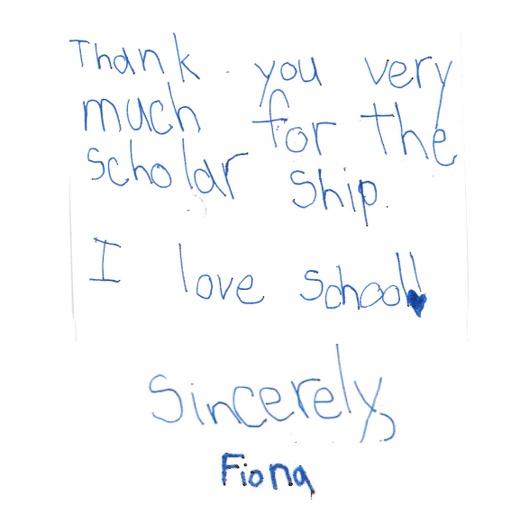 Thank you very
much for the
scholar ship.
I love school!
Sincerely,
Fiona